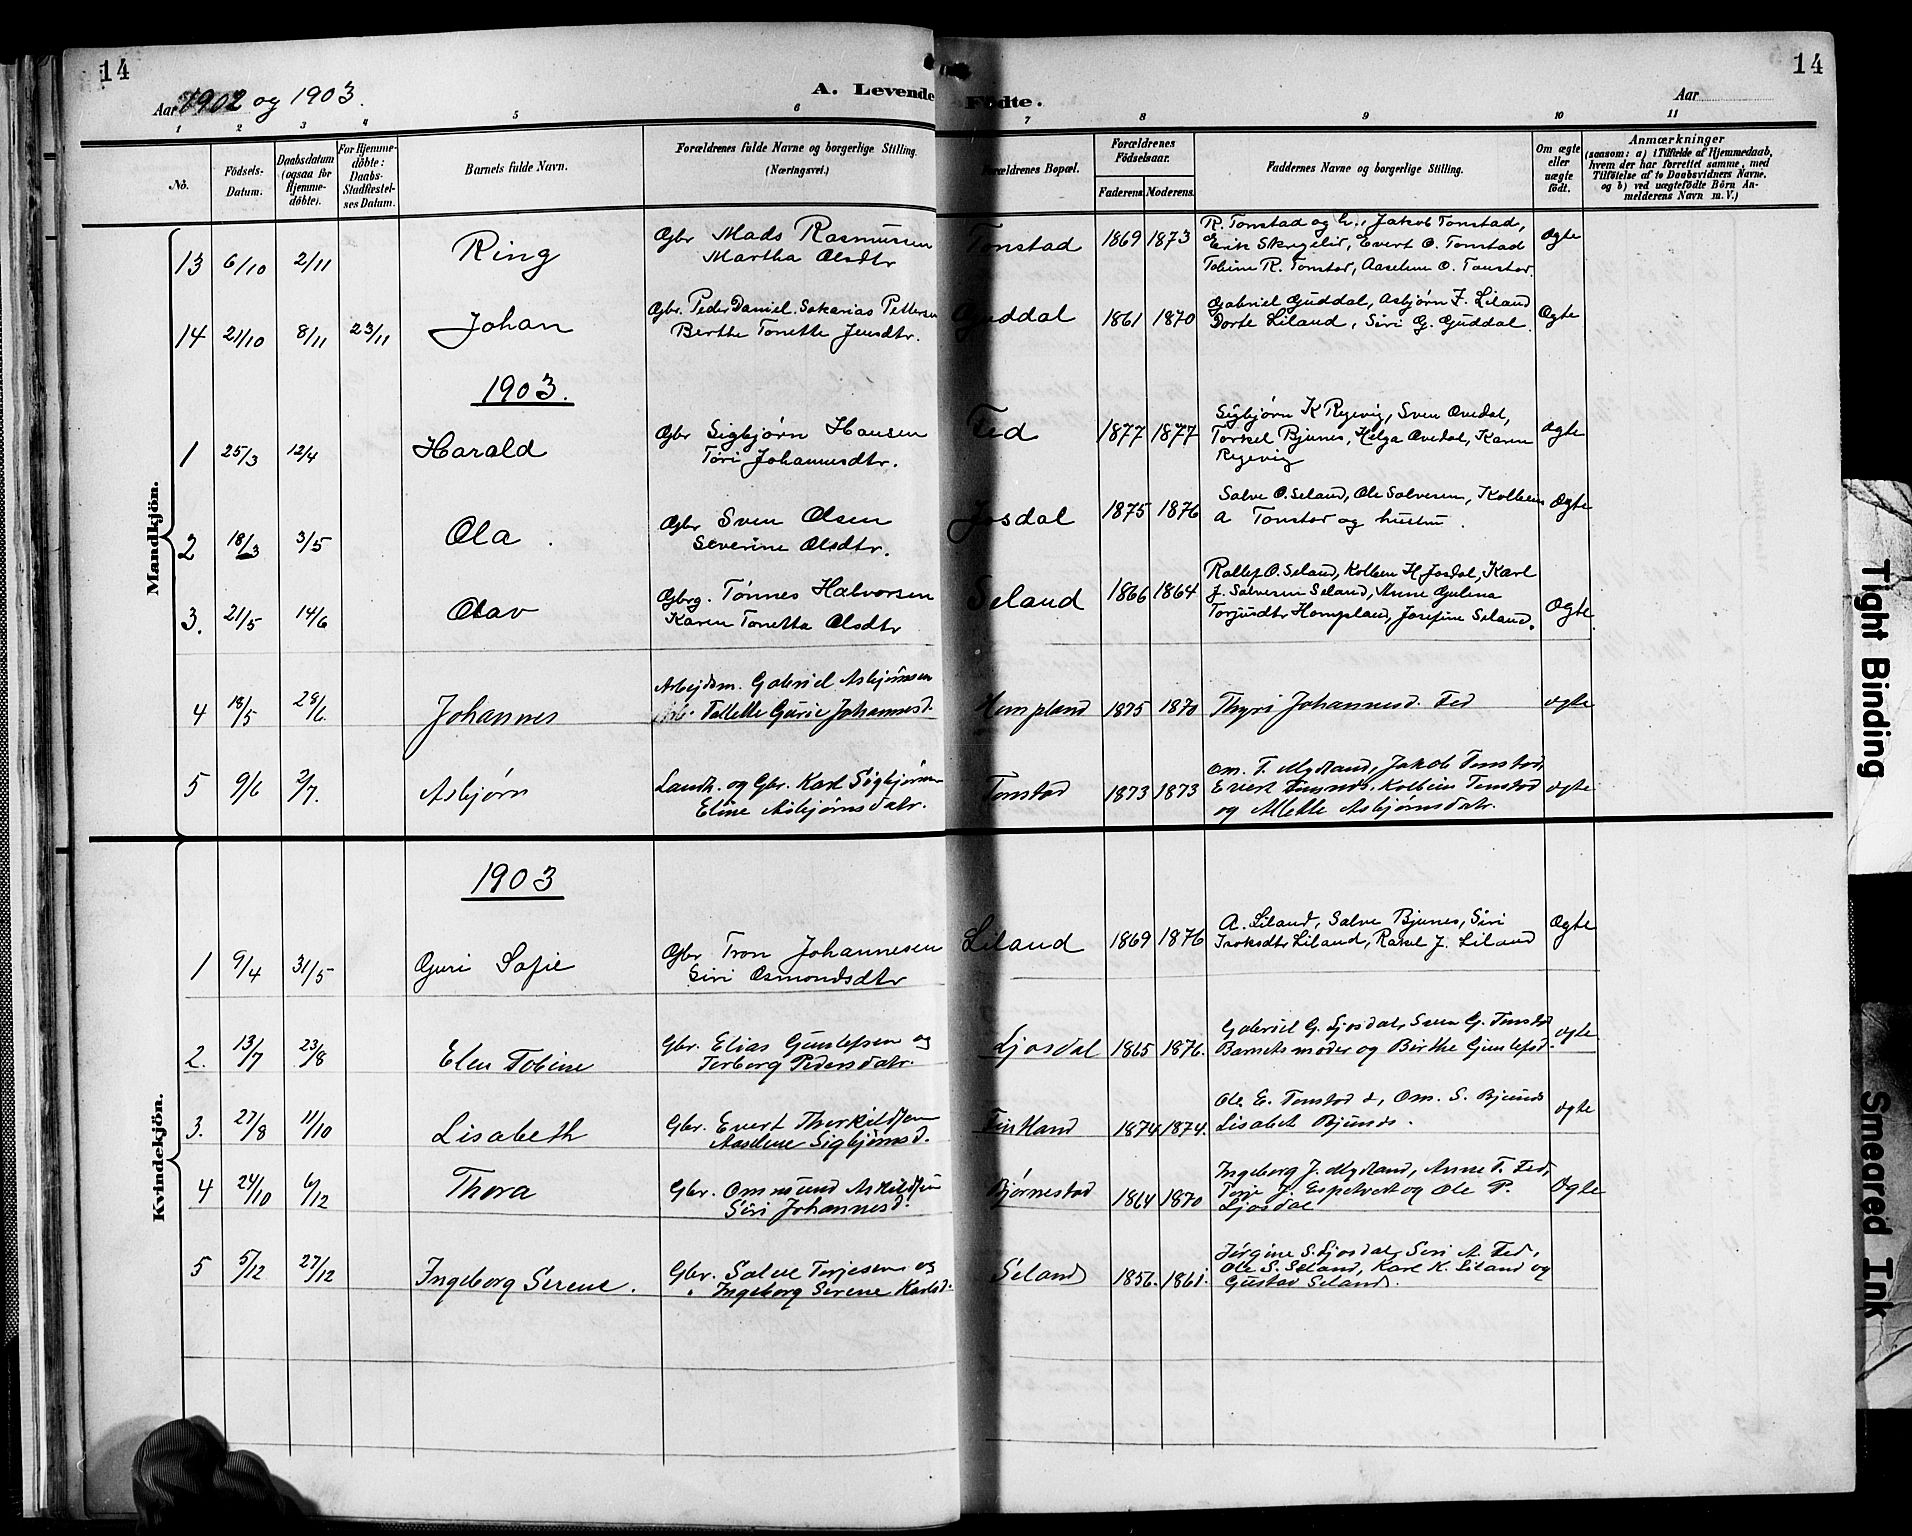 14
14
Aar 1902 og 1903.
A. Levende Fødte.
Aar
1 2 3 4 5 6 7 8 9 10 11
No.
Fødsels-Datum.
Daabsdatum (ogsaa for Hjemme-døbte).
For Hjemme-døbte: Daabs-Stadfæstel-ses Datum.
Barnets fulde Navn.
Forældrenes fulde Navne og borgerlige Stilling.
(Næringsvei.)
Forældrenes Bopæl.
Forældrenes Fødselsaar.
Faderens. Moderens.
Faddernes Navne og borgerlige Stilling.
Om ægte eller uægte født.
Anmærkninger
(saasom: a) i Tilfælde af Hjemmedaab,
hvem der har forrettet samme, med
Tilføielse af to Daabsvidners Navne,
og b) ved uægtefødte Børn An-
melderens Navn m. V.)
Mandkjön.
13 6/10 2/11 Ring Gbr Mads Rasmussen Tonstad 1869 1873 R. Tonstad og h., Jakob Tonstad, Ægte
Martha Olsdtr Erik Skregelid, Evert O. Tonstad
Tobine R. Tonstad, Aaselene O. Tonstad.
14 21/10 8/11 23/11 Johan Gbr. Peder Daniel Sakarias Pettersen Guddal 1861 1870 Gabriel Guddal, Asbjørn F. Liland Ægte
Birthe Tonette Jensdtr. Dorte Liland, Siri G. Guddal.
1903.
1 25/3 12/4 Harald Gbr Sigbjørn Hansen Fed 1877 1877 Sigbjørn K Regevig, Sven Ovedal, Ægte
Tori Johannesdtr. Torkel Bjunes, Helga Ovedal, Karen
Regevig
2 18/3 3/5 Ola. Gbr Sven Olsen Josdal 1875 1876 Salve O. Seland, Ole Salvesen, Kolbein Ægte
Severine Olsdtr. A Tonstad og hustru.
3. 21/5 14/6 Olav Gbrg. Tønnes Halvorsen Seland 1866 1864 Rollef O. Seland, Kolbein H Josdal, Karl
Karen Tonetta Olsdtr J. Salvesen Seland, Anne Gulena
Torjusdtr Hompland, Josefine Seland. Ægte.
4 18/5 28/6. Johannes Arbejdsm. Gabriel Asbjørnsen
Tallette Gurie Johannesd. Hompland 1875 1870 Thyri Johannesd. Fed ægte
5 9/6 2/7. Asbjørn Landh. og Gbr. Karl Sigbjørnsen Tonstad 1873 1873 Om. T. Mydland, Jakob Tonstad,
Eline Asbjørnsdatr. Evert Tonstad, Kolbein Tonstad ægte
og Allette Asbjørnsdatr.
Kvindekjön.
1903
1 9/4 31/5 Guri Sofie Gbr Tron Johannesen Liland 1869 1876 A. Liland, Salve Bjunes, Siri Ægte
Siri Osmondsdtr Liland, Rakel J. Liland
2. 13/7 23/8 Elen Tobine Gbr. Elias Gunlefsen og Ljosdal 1865 1876. Gabriel G. Ljosdal, Sven G. Tonstad ægte
Torborg Pedersdatr. Barnets moder og Birthe Gunlefsd.
3. 27/8 11/10 Lisabeth Gbr. Evert Therkildsen Finkland 1874 1874. Ole E. Tonstad &, Om. S. Bjunes ægte
Aaselene Sigbjørnsd. Lisabet Bjunes.
4 24/10 6/12 Thora Gbr. Ommund Askildsen Bjørnestad 1864 1870 Ingeborg J. Mydland, Anne T. Fed, Ægte
Siri Johannesd. Terje J. Espetveit og Ole P.
Ljosdal
5 5/12 27/12 Ingeborg Serene. Gbr. Salve Terjesen og Seland 1856. 1861. Jørgine S. Ljosdal, Siri A. Fed,
" Ingeborg Serene Karlsd. Ole S. Seland, Karl K. Liland og
Gustav Seland.
Tight Binding
Smeared Ink